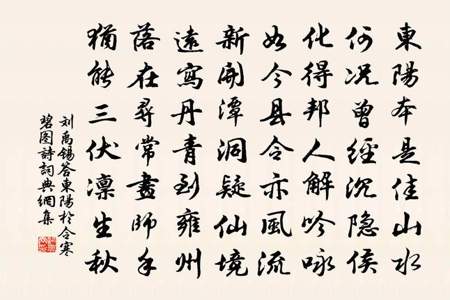 東陽本是佳山水
何况曾經沉隐侯
化得邦人解吟咏
如今县令亦風流
新開潭洞疑仙境
遠寫丹青到雍州
落在尋常畫師手
猶能三伏凛生秋
刘禹锡答東陽於令寒
碧图詩詞典網集